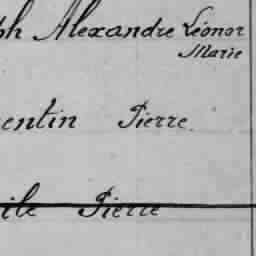 ph Alexandre Léonor
Marie
entin Pierre
ile Pierre